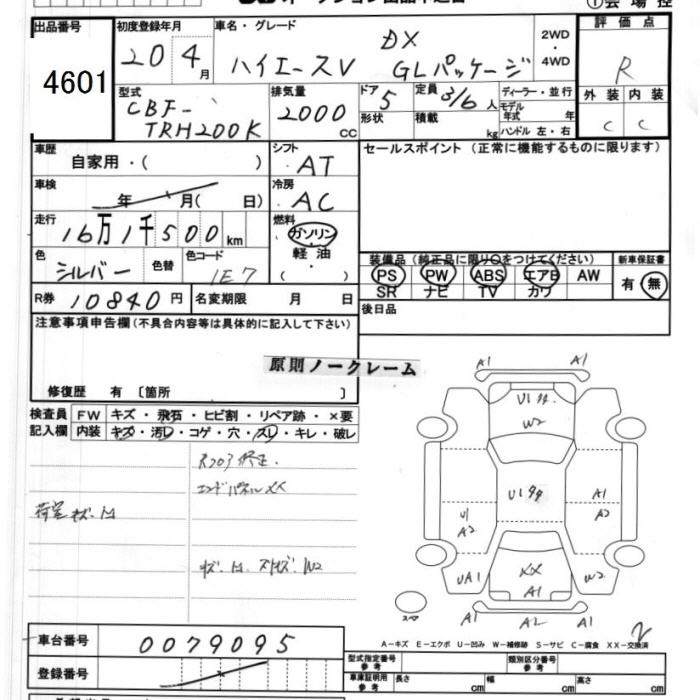 出品番号 4601
初度登録年月 20 4月
車名・グレード
ハイエースV DX GLパッケージ
2WD ・ 4WD
評価点 R
外装 内装
C C
型式 CBF-TRH200K
排気量 2000 CC
ドア 5
形状
定員 3/6 人
積載 kg
ディーラー・並行
モデル年式 年
ハンドル 左・右
車歴 自家用・( )
シフト AT
セールスポイント(正常に機能するものに限ります)
車検 年 月( 日)
冷房 AC
走行 16万1千500km
燃料 ガソリン・軽油・( )
色 シルバー 色替
色コード 1E7
装備品(純正品に限り○をつけてください)
PS PW ABS エアB AW
SR ナビ TV カワ
新車保証書
有 無
R券 10840円
名変期限 月 日
後日品
注意事項申告欄(不具合内容等は具体的に記入して下さい)
原則ノークレーム
修復歴 有 〔箇所 〕
検査員記入欄
FW キズ・飛石・ヒビ割・リペア跡・×要
内装 キズ・汚レ・コゲ・穴・スレ・キレ・破レ
エンドパネルXX
A1 A1
U1
W2
U1
A1
A2
U1
A2
UA1
XX
A1
W2
スペア
A1 A2 A1
2
A-キズ E-エクボ U-凹み W-補修跡 S-サビ C-腐食 XX-交換済
車台番号 0079095
登録番号
型式指定番号 参考
類別区分番号 参考
車庫証明用 参考
長さ cm 幅 cm 高さ cm